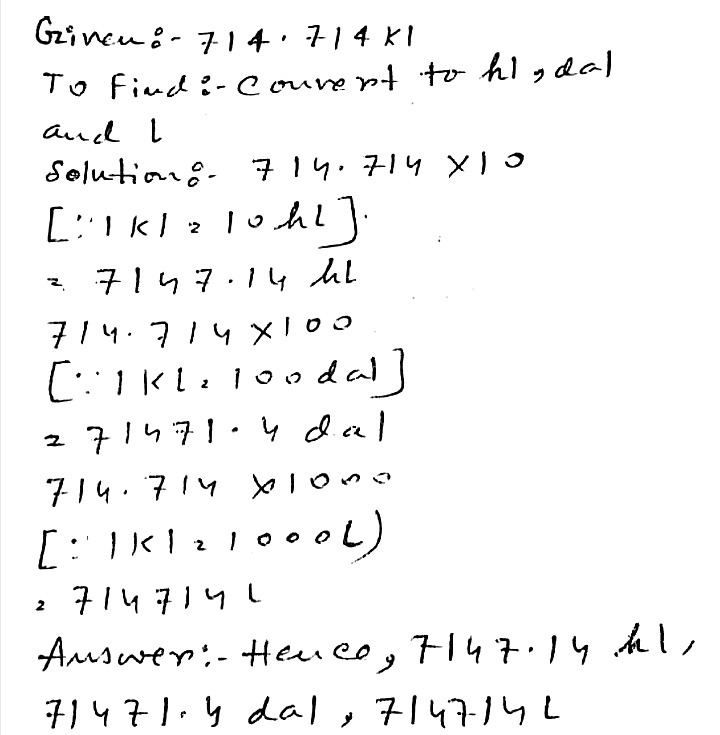 Given:- 714.714 kl
To Find:- Convert to hl, dal
and l
Solution:- 714.714 × 10
[∵ 1 kl = 10 hl].
= 7147.14 hl
714.714 × 100
[∵ 1 kl = 100 dal]
= 71471.4 dal
714.714 × 1000
[∵ 1 kl = 1000L)
= 714714 l
Answer:- Hence, 7147.14 hl,
71471.4 dal, 714714 L